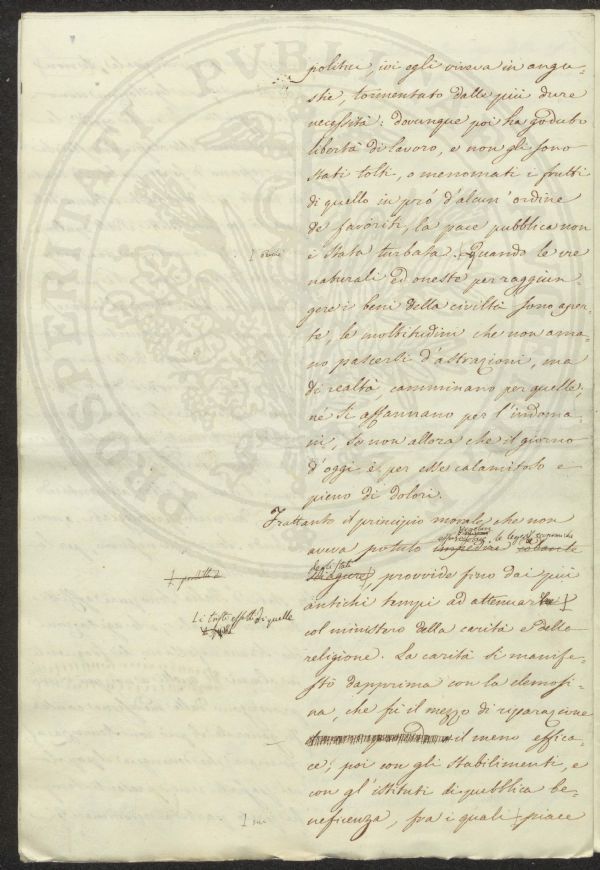 politici, ivi egli viveva in angu-
stie, tormentato dalle più dure
necessità: dovunque poi ha goduto
libertà di lavoro, e non gli sono
stati tolti, o menomati i frutti
di quello in pró d'alcun'ordine
de favoriti, la pace pubblica non
è stata turbata. Quando le vie
naturali ed oneste per raggiun
gere i beni della civiltà sono aper-
te, le moltitudini che non ama-
no pascersi d'astrazioni, ma
di realtà camminano per quelle,
né si affannano per l'indoma-
ni, se non allora che il giorno
d'oggi è per esse calamitoso e
pieno di dolori.
Frattanto il principio morale, che non
le leggi
aveva potuto impedire
degli stati
sciagure, provvide fino dai più
antichi tempi ad attenuar
li tristi effetti di quelle
col ministero della carità e della
religione. La carità si manife-
stò dapprima con la elemosi-
na, che fù il mezzo di riparazione
il meno effica-
ce; poi con gli stabilimenti, e
con gl'istituti di pubblica be-
neficenza, fra i quali piace
PROSPERITATI PVBLICAE